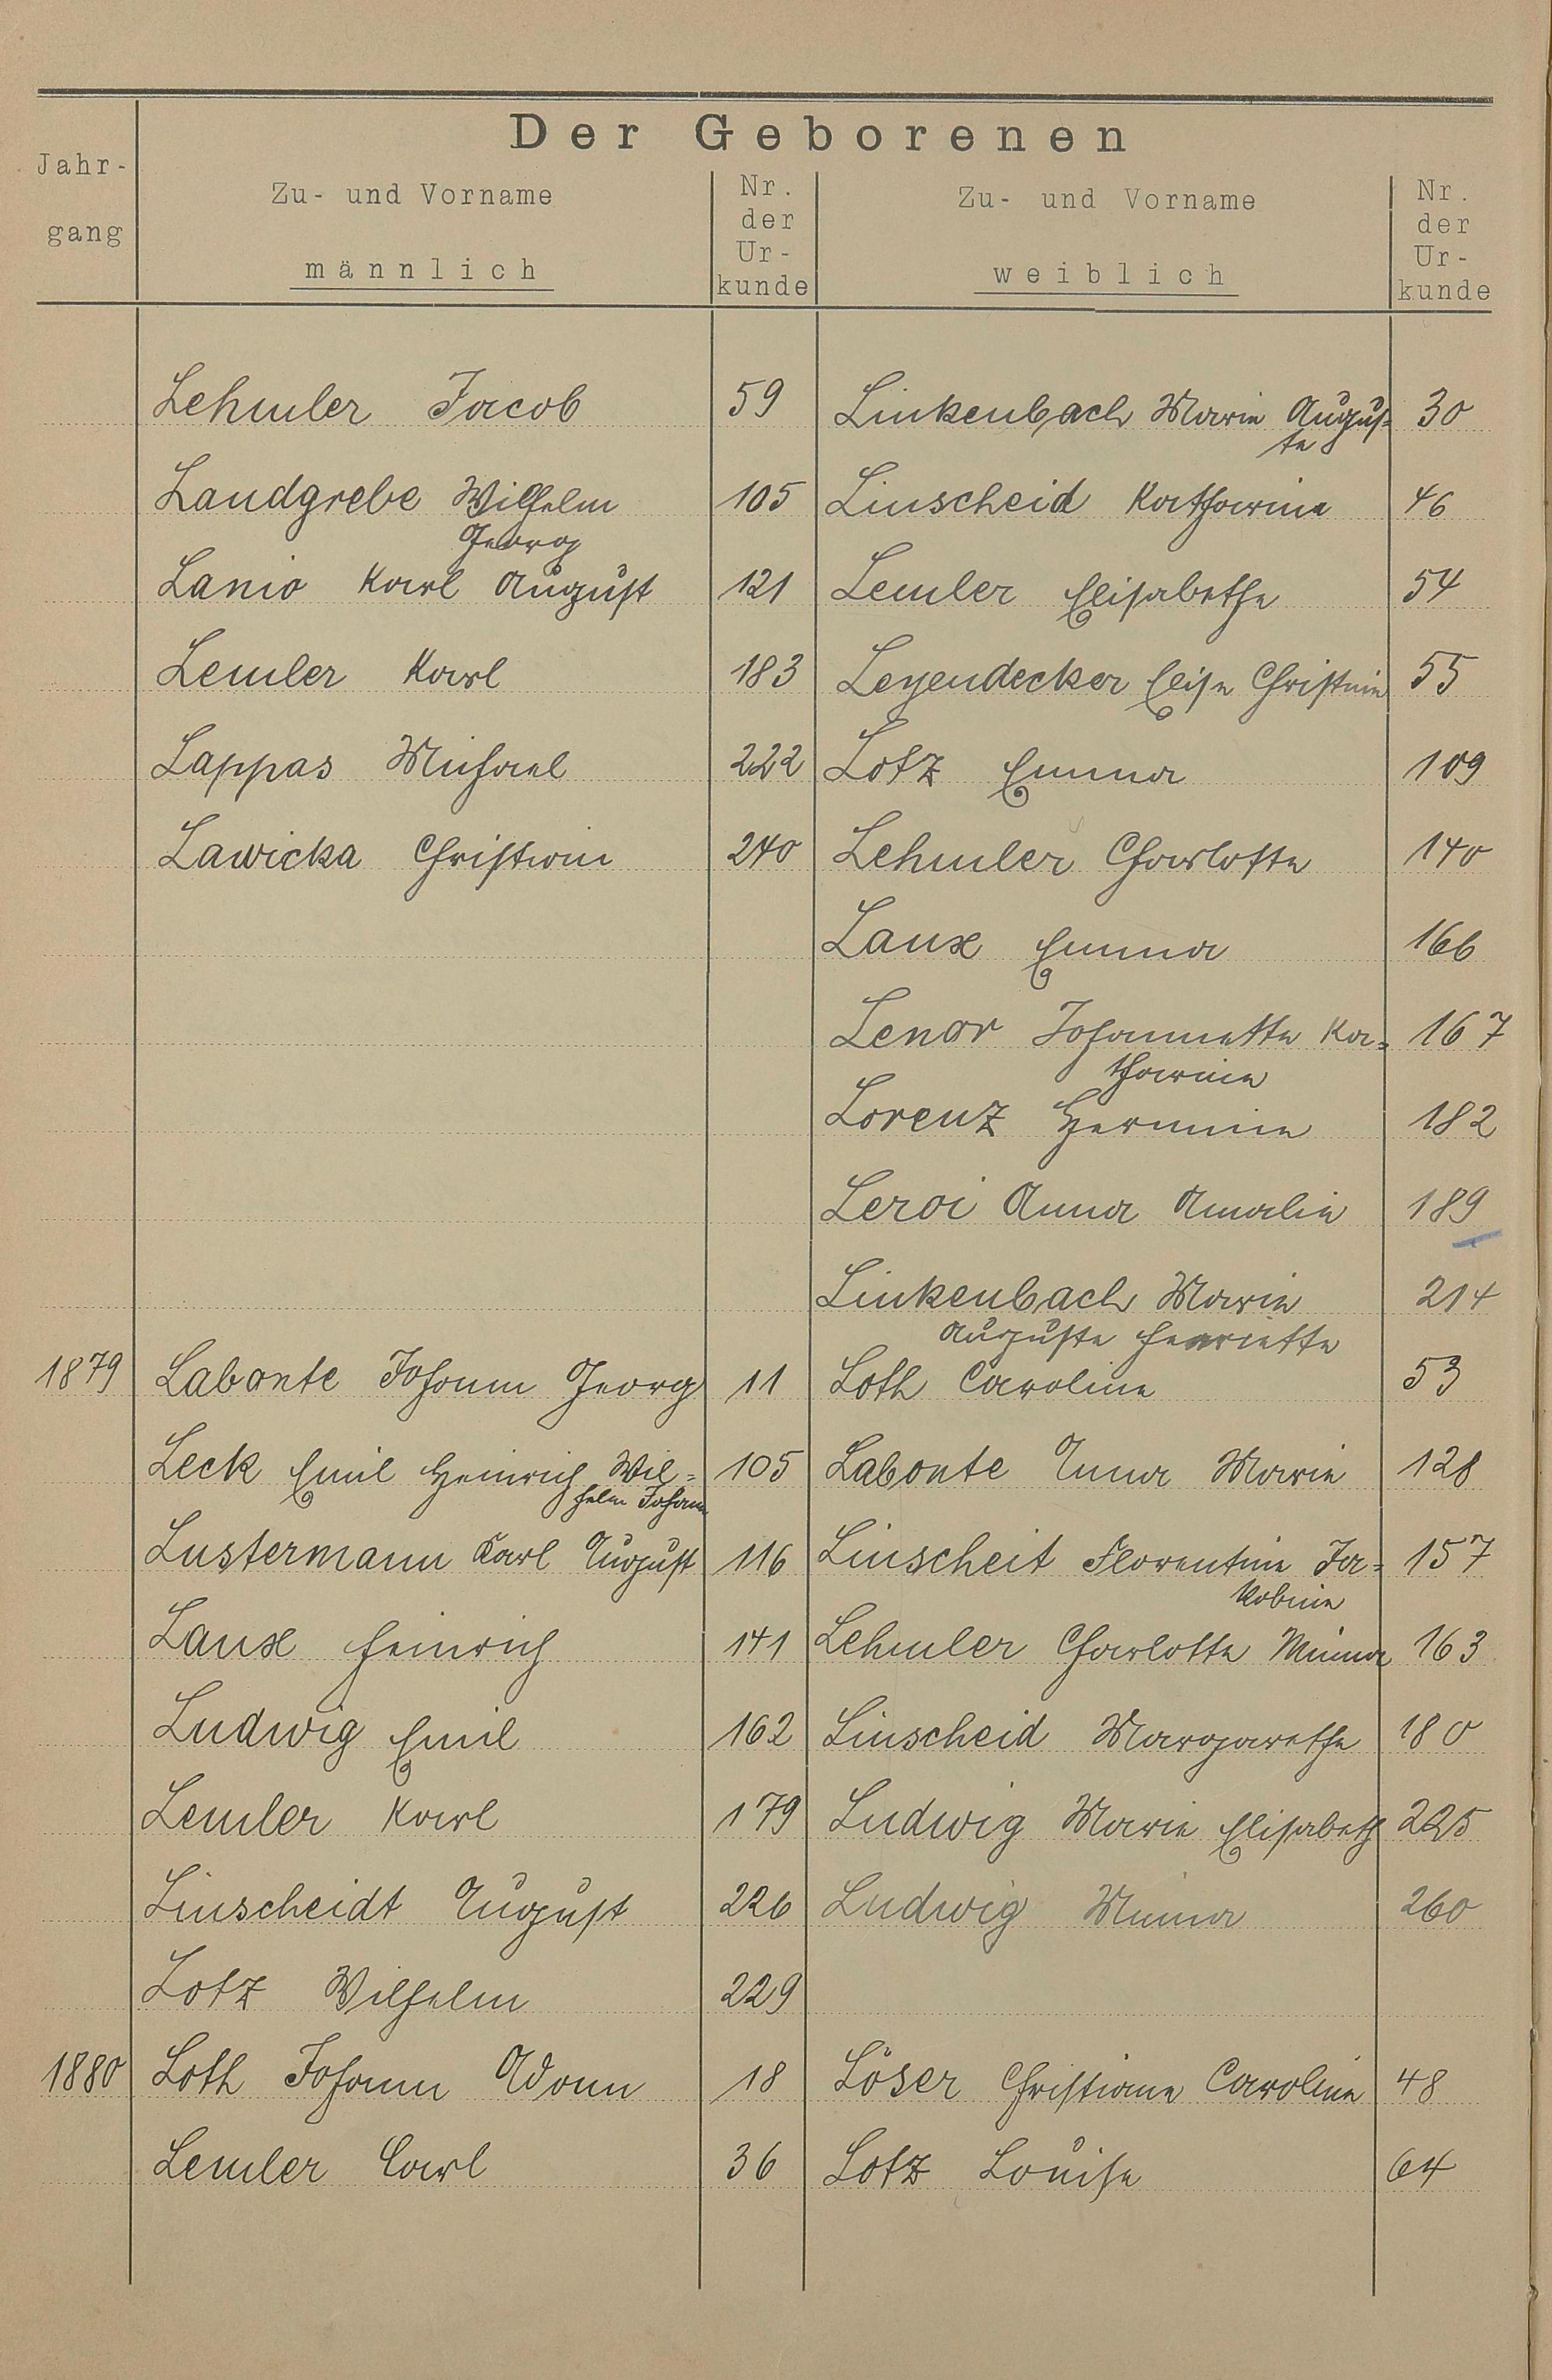 Der Geborenen
Jahr-
gang
Zu- und Vorname
männlich
Nr.
der
Ur-
kunde
Zu- und Vorname
weiblich
Nr.
der
Ur-
kunde
Lehmler Jacob 59 Linkenbach Marie Augus= 30
te
Landgrebe Wilhelm 105 Linscheid Katharina 46
Georg
Lanio Karl August 121 Lemler Elisabethe 54
Lemler Karl 183 Leyendecker Elise Christine 55
Lappas Michael 222 Lotz Emma 109
Lawicka Christian 240 Lehmler Charlotte 140
Laux Emma 166
Lenor Johannette Ka= 167
tharine
Lorenz Hermine 182
Leroi Anna Amalie 189
Linkenbach Marie 214
Auguste Henriette
1879 Labonte Johann Georg 11 Loth Caroline 53
Leck Emil Heinrich Wil= 105 Labonte Anna Marie 128
helm Johann
Lustermann Karl August 116 Linscheit Florentine Ja= 157
kobine
Laux Heinrich 141 Lehmler Charlotte Minna 163
Ludwig Emil 162 Linscheid Margarethe 180
Lemler Karl 179 Ludwig Marie Elisabeth 225
Linscheidt August 226 Ludwig Minna 260
Lotz Wilhelm 229
1880 Loth Johann Adam 18 Löser Christiane Caroline 48
Lemler Carl 36 Lotz Louise 64